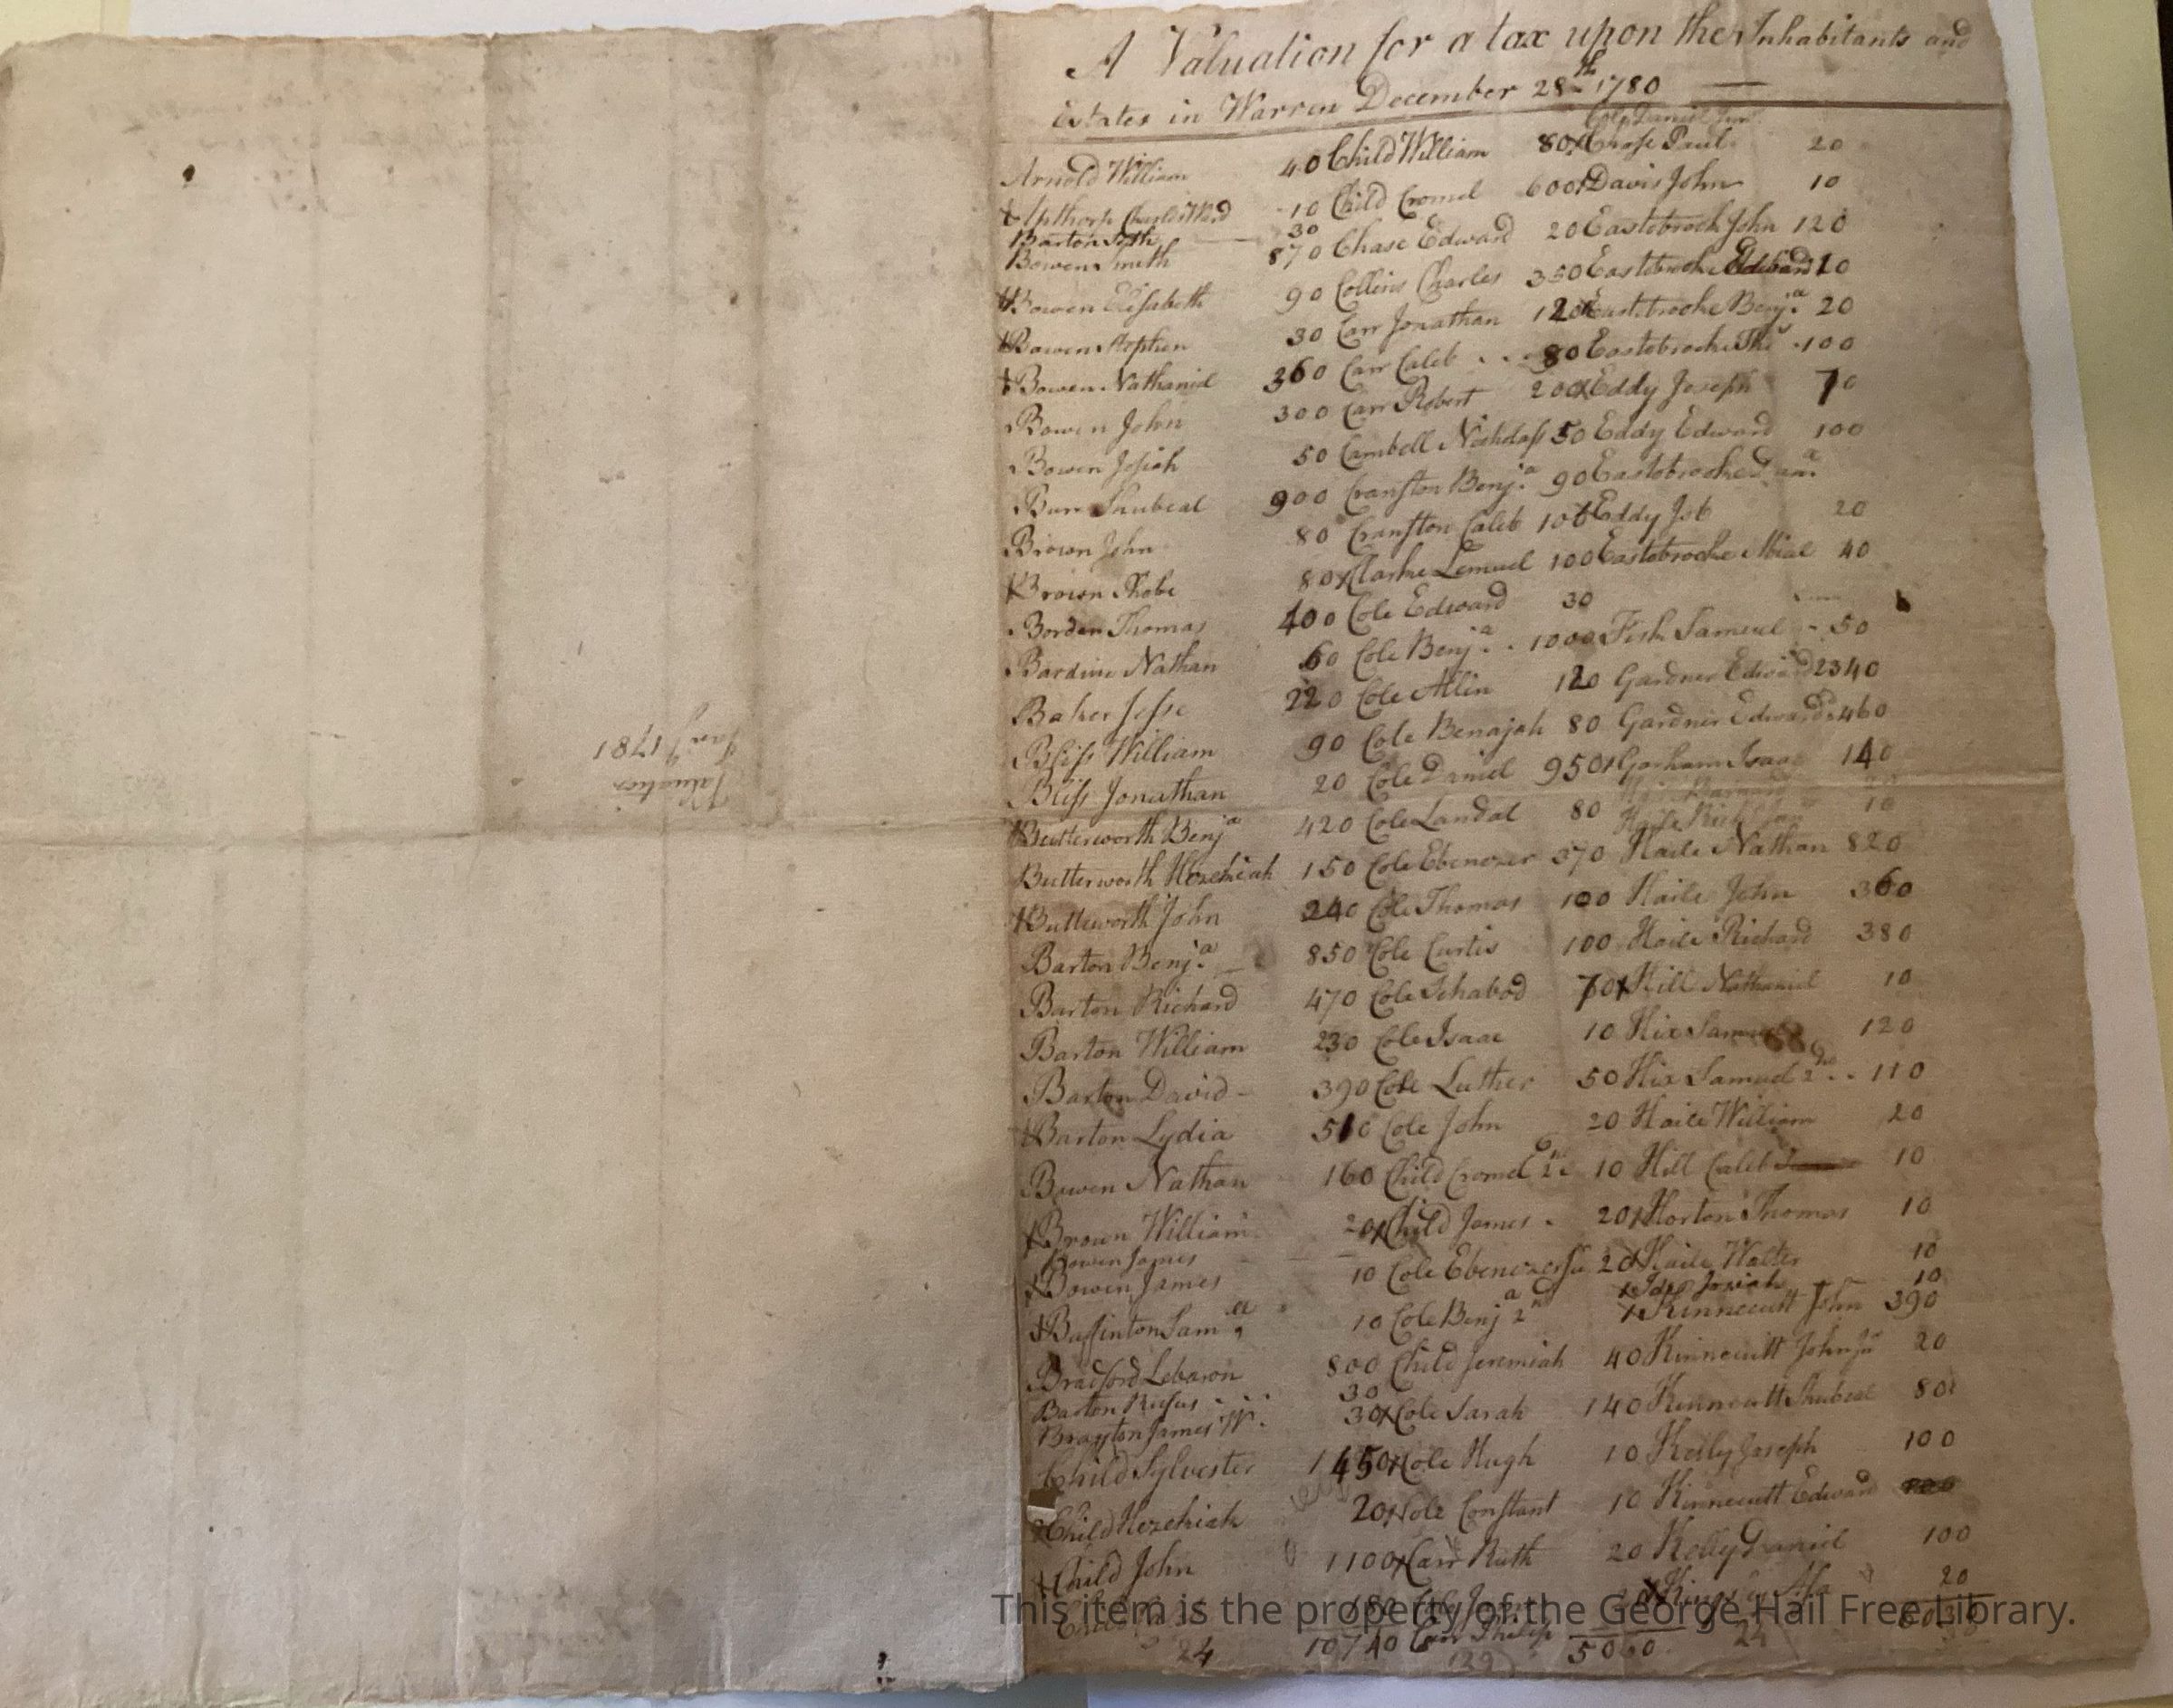 A Valuation for a tax upon the Inhabitants and
Estates in Warren December 28th 1780
Arnold William 40
Apthorp Charles Ward 10
Barton Seth 30
Bowen Smith 870
Bowen Elisabeth 90
Bowen Stephen 30
Bowen Nathaniel 360
Bowen John 300
Bowen Josiah 50
Burr Shubeal 900
Brown John 80
Brown Phobe 80
Borden Thomas 400
Bardine Nathan 60
Baker Jesse 220
Bliss William 90
Bliss Jonathan 20
Butterworth Benja 420
Butterworth Hezekiah 150
Butterworth John 240
Barton Benja 850
Barton Richard 470
Barton William 230
Barton David 390
Barton Lydia 510
Bowen Nathan 160
Brown William 20
Bowen James
Bowen James 10
Buffinton Samll 10
Bradford Lebaron 800
Barton Rufus 30
Brayton James W. 30
Child Sylvester 1450
Child Hezekiah 20
Child John 1100
24 10740
Child William 80
Child Cromel 600
Chase Edward 20
Collins Charles 350
Carr Jonathan 120
Carr Caleb 80
Carr Robert 200
Cambell Nicholass 50
Cranston Benja 90
Cranston Caleb 10
Clarke Lemuel 100
Cole Edward 30
Cole Benja 1000
Cole Allin 120
Cole Benajah 80
Cole Daniel 950
Cole Landal 80
Cole Ebenezer 370
Cole Thomas 100
Cole Curtis 100
Cole Ichabod 70
Cole Isaac 10
Cole Luther 50
Cole John 20
Child Cromel 2d 10
Child James 20
Cole Ebenezer Ju 20
Cole Benja 2d
Child Jeremiah 40
Cole Sarah 140
Cole Hugh 10
Cole Constant 10
Carr Ruth 20
Carr Philip
5060
Cole Daniel Jun
Chase Paul 20
Davis John 10
Eastobrook John 120
Eastobrooke Edward 10
Eastobrooke Benja 20
Eastobrooke Tho 100
Eddy Joseph 70
Eddy Edward 100
Eastobrooke
Eddy Job 20
Eastobrooke Abial 40
Fish Samuel 50
Gardner Edward 2340
Gardner Edward 2d 460
Gorham Isaac 140
Haile Barnard
Haile Richd Jun 10
Haile Nathan 820
Haile John 360
Haile Richard 380
Hill Nathaniel 10
Hix Samuel 120
Hix Samuel 2nd 110
Haile William 20
Hill Caleb 10
Horton Thomas 10
Haile Walter 10
Ide Josiah 10
Kinnecutt John 390
Kinnecutt John Ju 20
Kinnecutt Shubeal 80
Kelly Joseph 100
Kinnecutt Edward
Kelly Daniel 100
20
24
Valuation
Jany 1781
This item is the property of the George Hail Free Library.